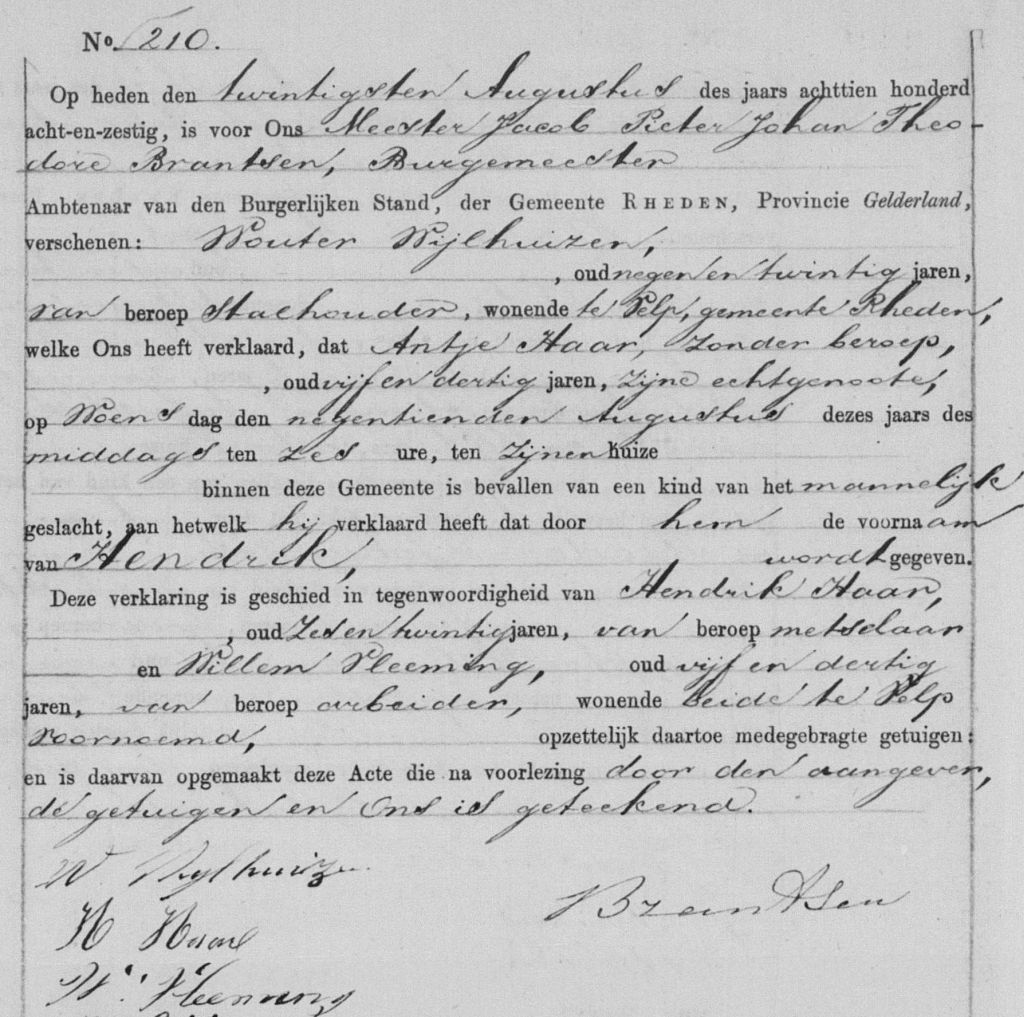 No. 210.
Op heden den twintigsten Augustus des jaars achttien honderd
acht-en-zestig, is voor Ons Meester Jacob Pieter Johan Theo-
dore Brantsen, Burgemeester
Ambtenaar van den Burgerlijken Stand, der Gemeente RHEDEN, Provincie Gelderland,
verschenen: Wouter Wijlhuizen,
, oud negen en twintig jaren,
van beroep Stalhouder, wonende te Velp, gemeente Rheden,
welke Ons heeft verklaard, dat Antje Haar, zonder beroep,
, oud vijf en dertig jaren, zijne echtgenoote,
op Woensdag den negentienden Augustus dezes jaars des
middags ten zes ure, ten zijnen huize
binnen deze Gemeente is bevallen van een kind van het mannelijk
geslacht, aan hetwelk hij verklaard heeft dat door hem de voornaam
van Hendrik, wordt gegeven.
Deze verklaring is geschied in tegenwoordigheid van Hendrik Haar,
, oud Zes en twintig jaren, van beroep metselaar
en Willem Vleeming, oud vijf en dertig
jaren, van beroep arbeider, wonende beide te Velp
voornoemd, opzettelijk daartoe medegebragte getuigen:
en is daarvan opgemaakt deze Acte die na voorlezing door den aangever,
de getuigen en Ons is geteekend.
W Wylhuizen
Brantsen
H Haar
W. Vleeming